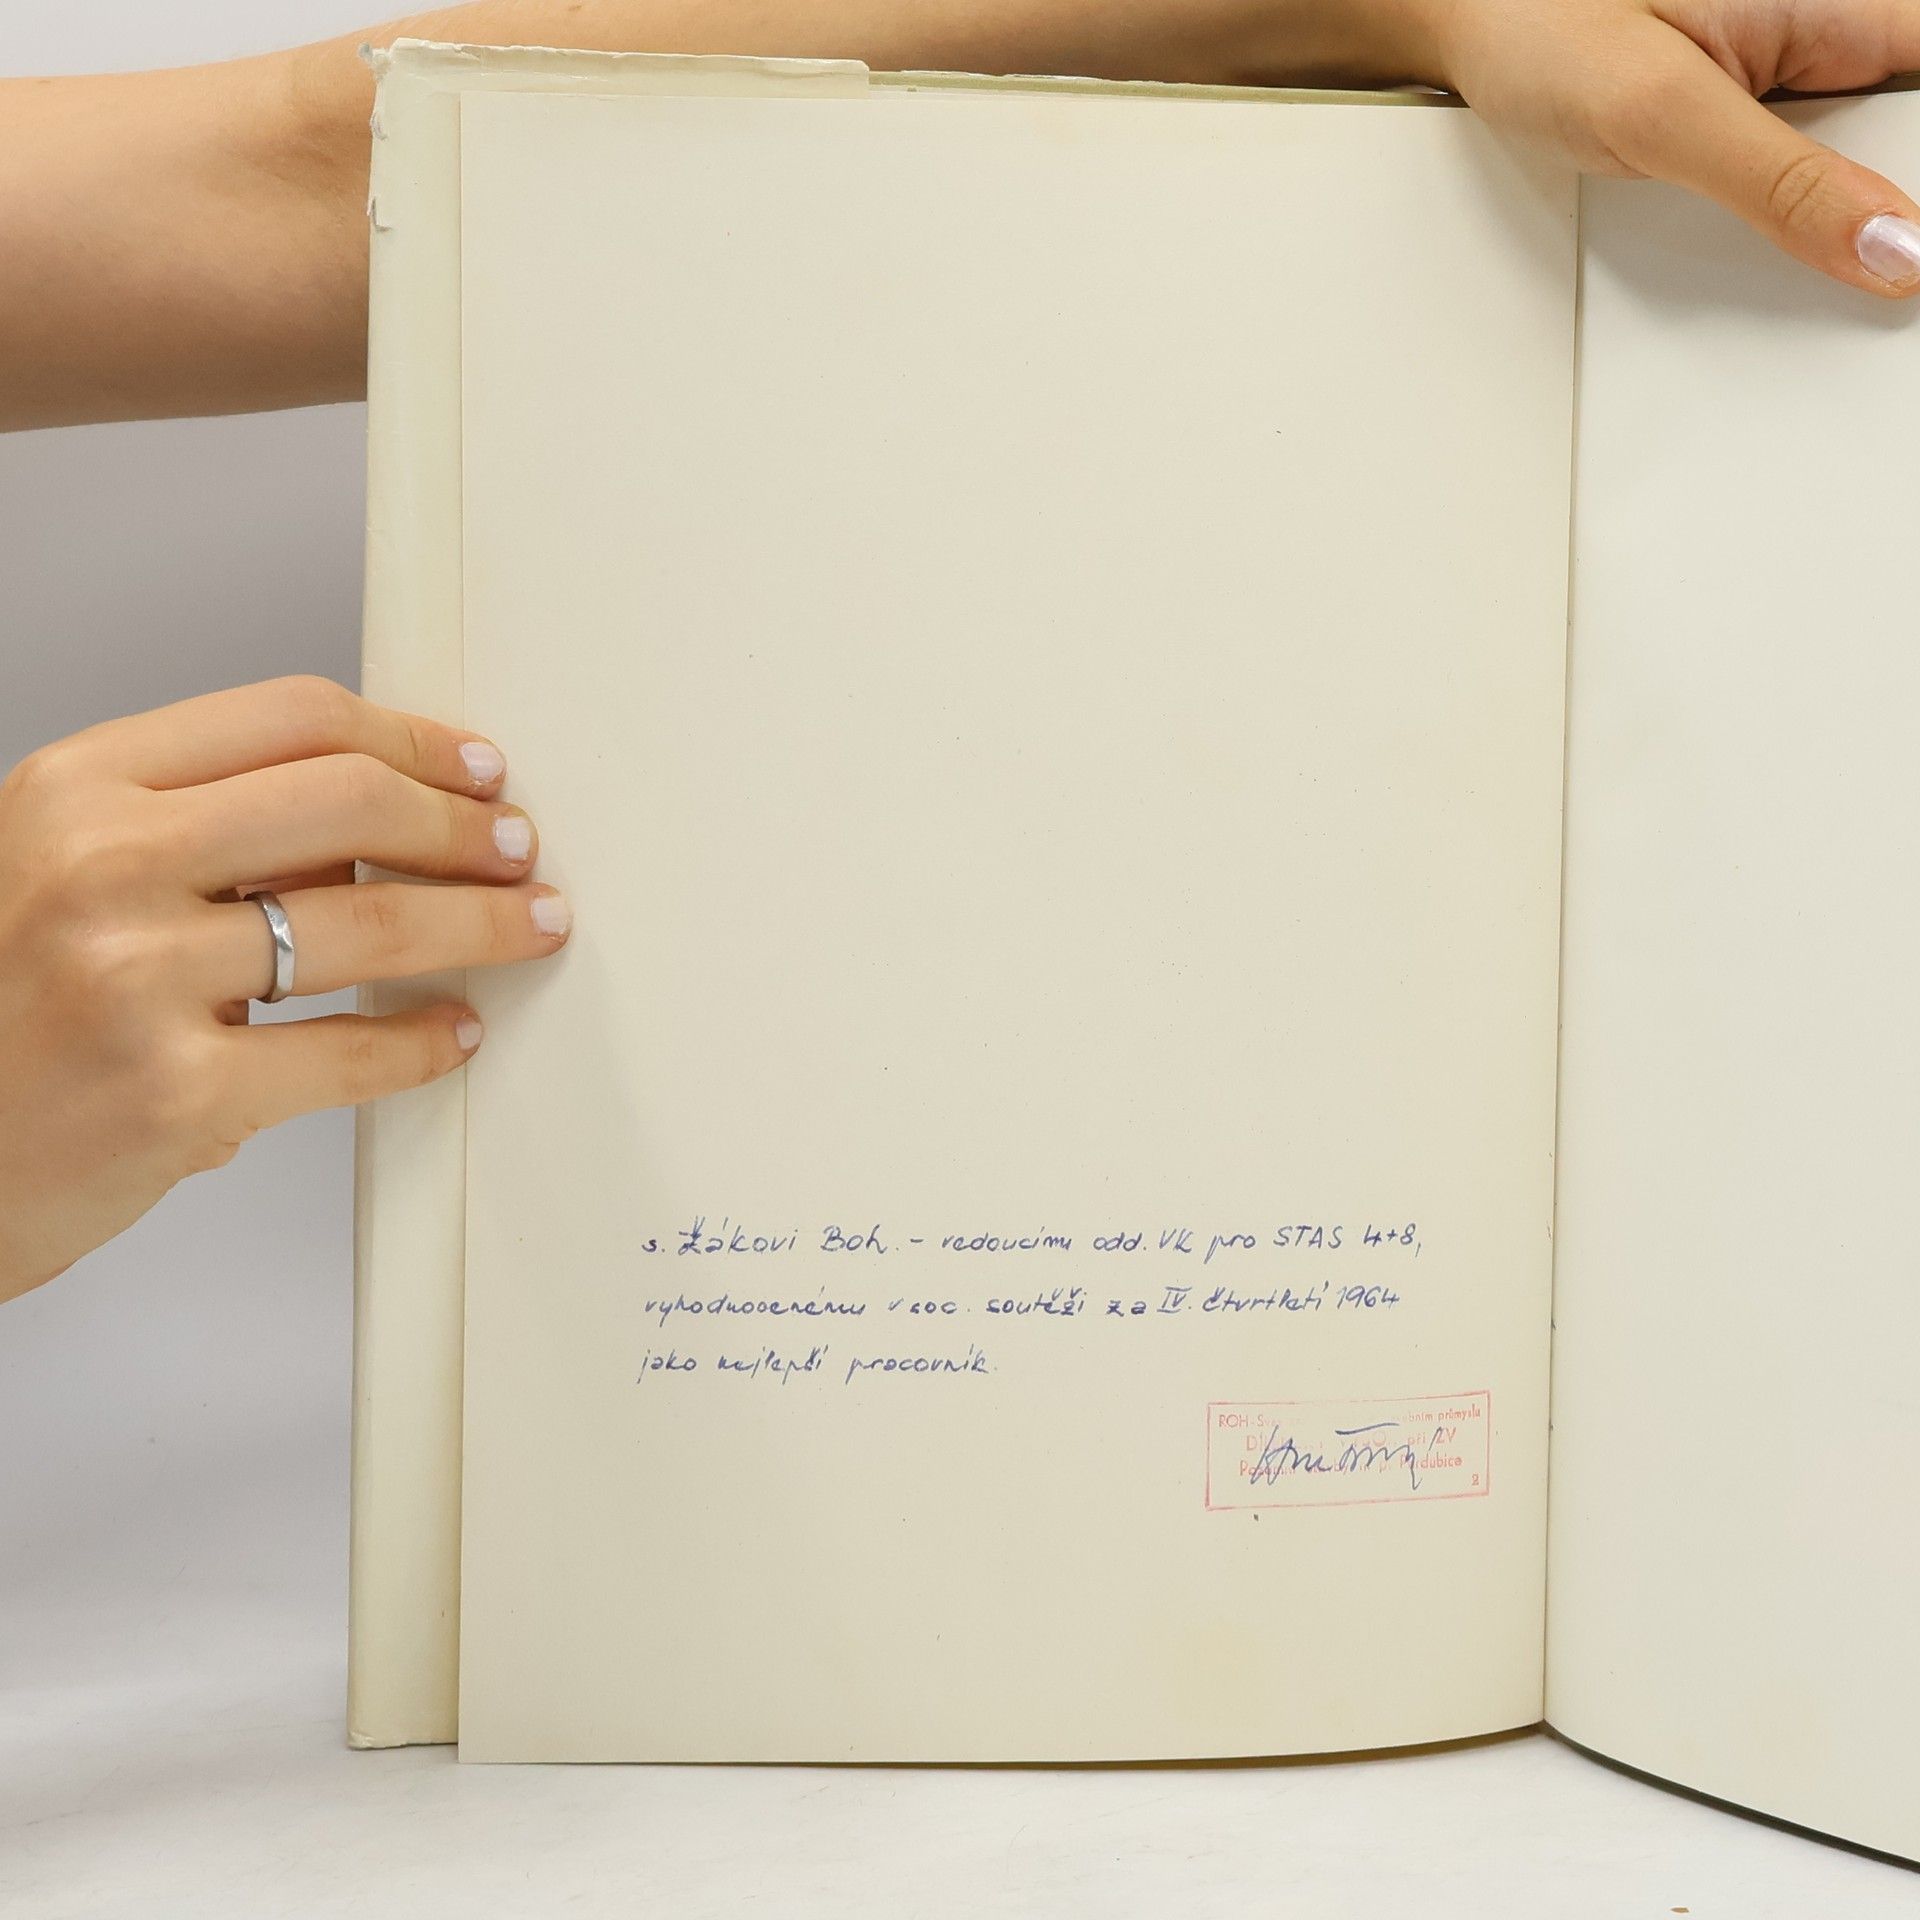 s. Žákovi Boh. - vedoucímu odd. VK pro STAS 4+8,
vyhodnocenému v soc. soutěži za IV. čtvrtletí 1964
jako nejlepší pracovník.
ROH - průmyslu
při ZV
n. p. Pardubice
2